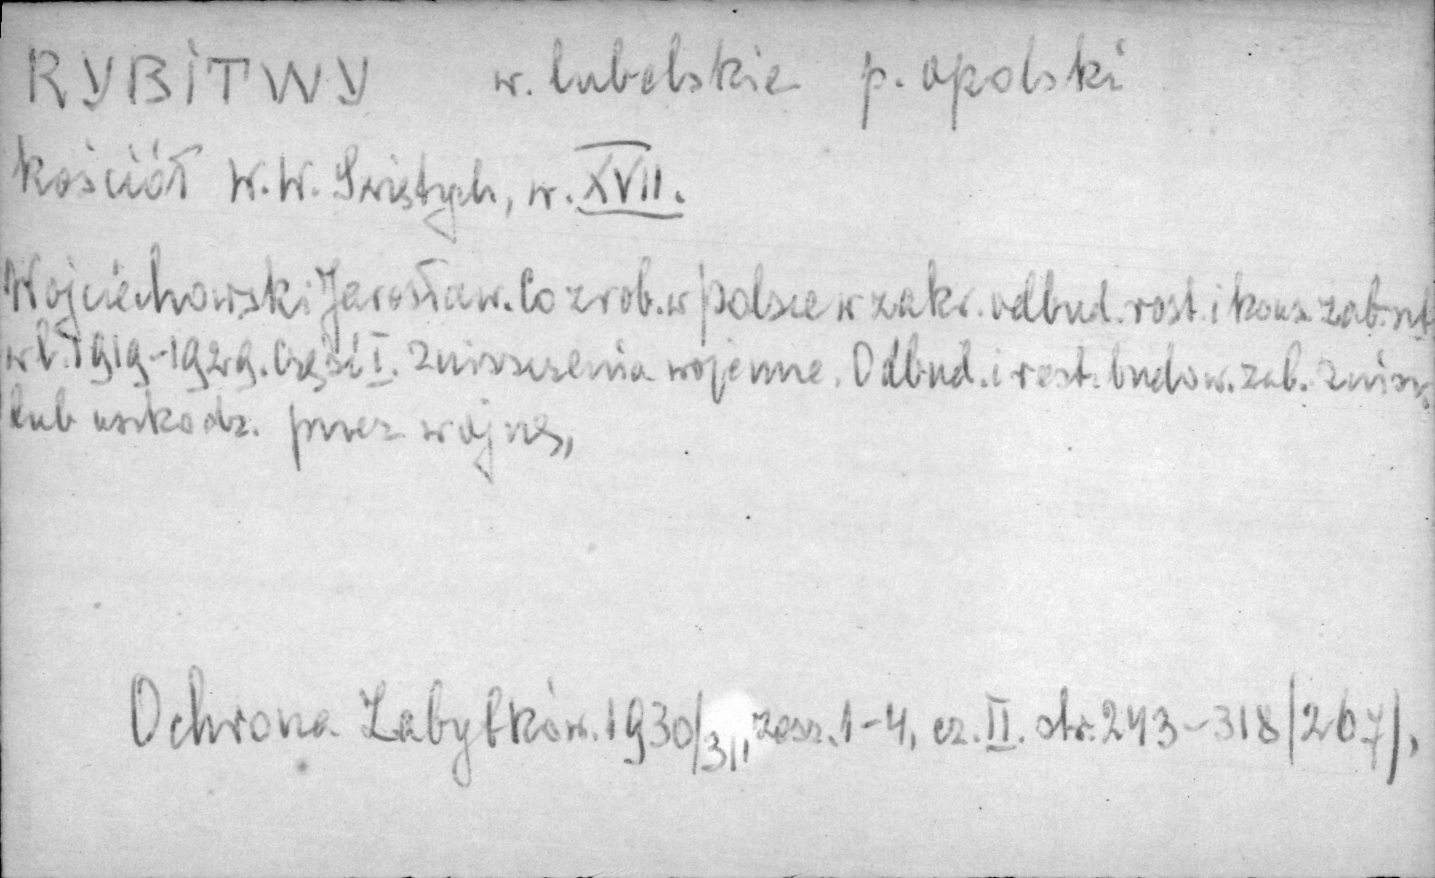 RYBITWY w. lubelskie p. opolski
kościół W.W. Świętych, w. XVII.
Wojciechowski Jarosław. Co zrob. w Polsce w zakr. odbud. rest. i kons. zab. szt.
w l. 1919-1929. Część I. Zniszczenia wojenne. Odbud. i rest. budow. zab. zniszcz.
lub uszkodz. przez wojnę,
Ochrona Zabytków. 1930/31, zesz. 1-4, cz. II. str. 243-318/267/,